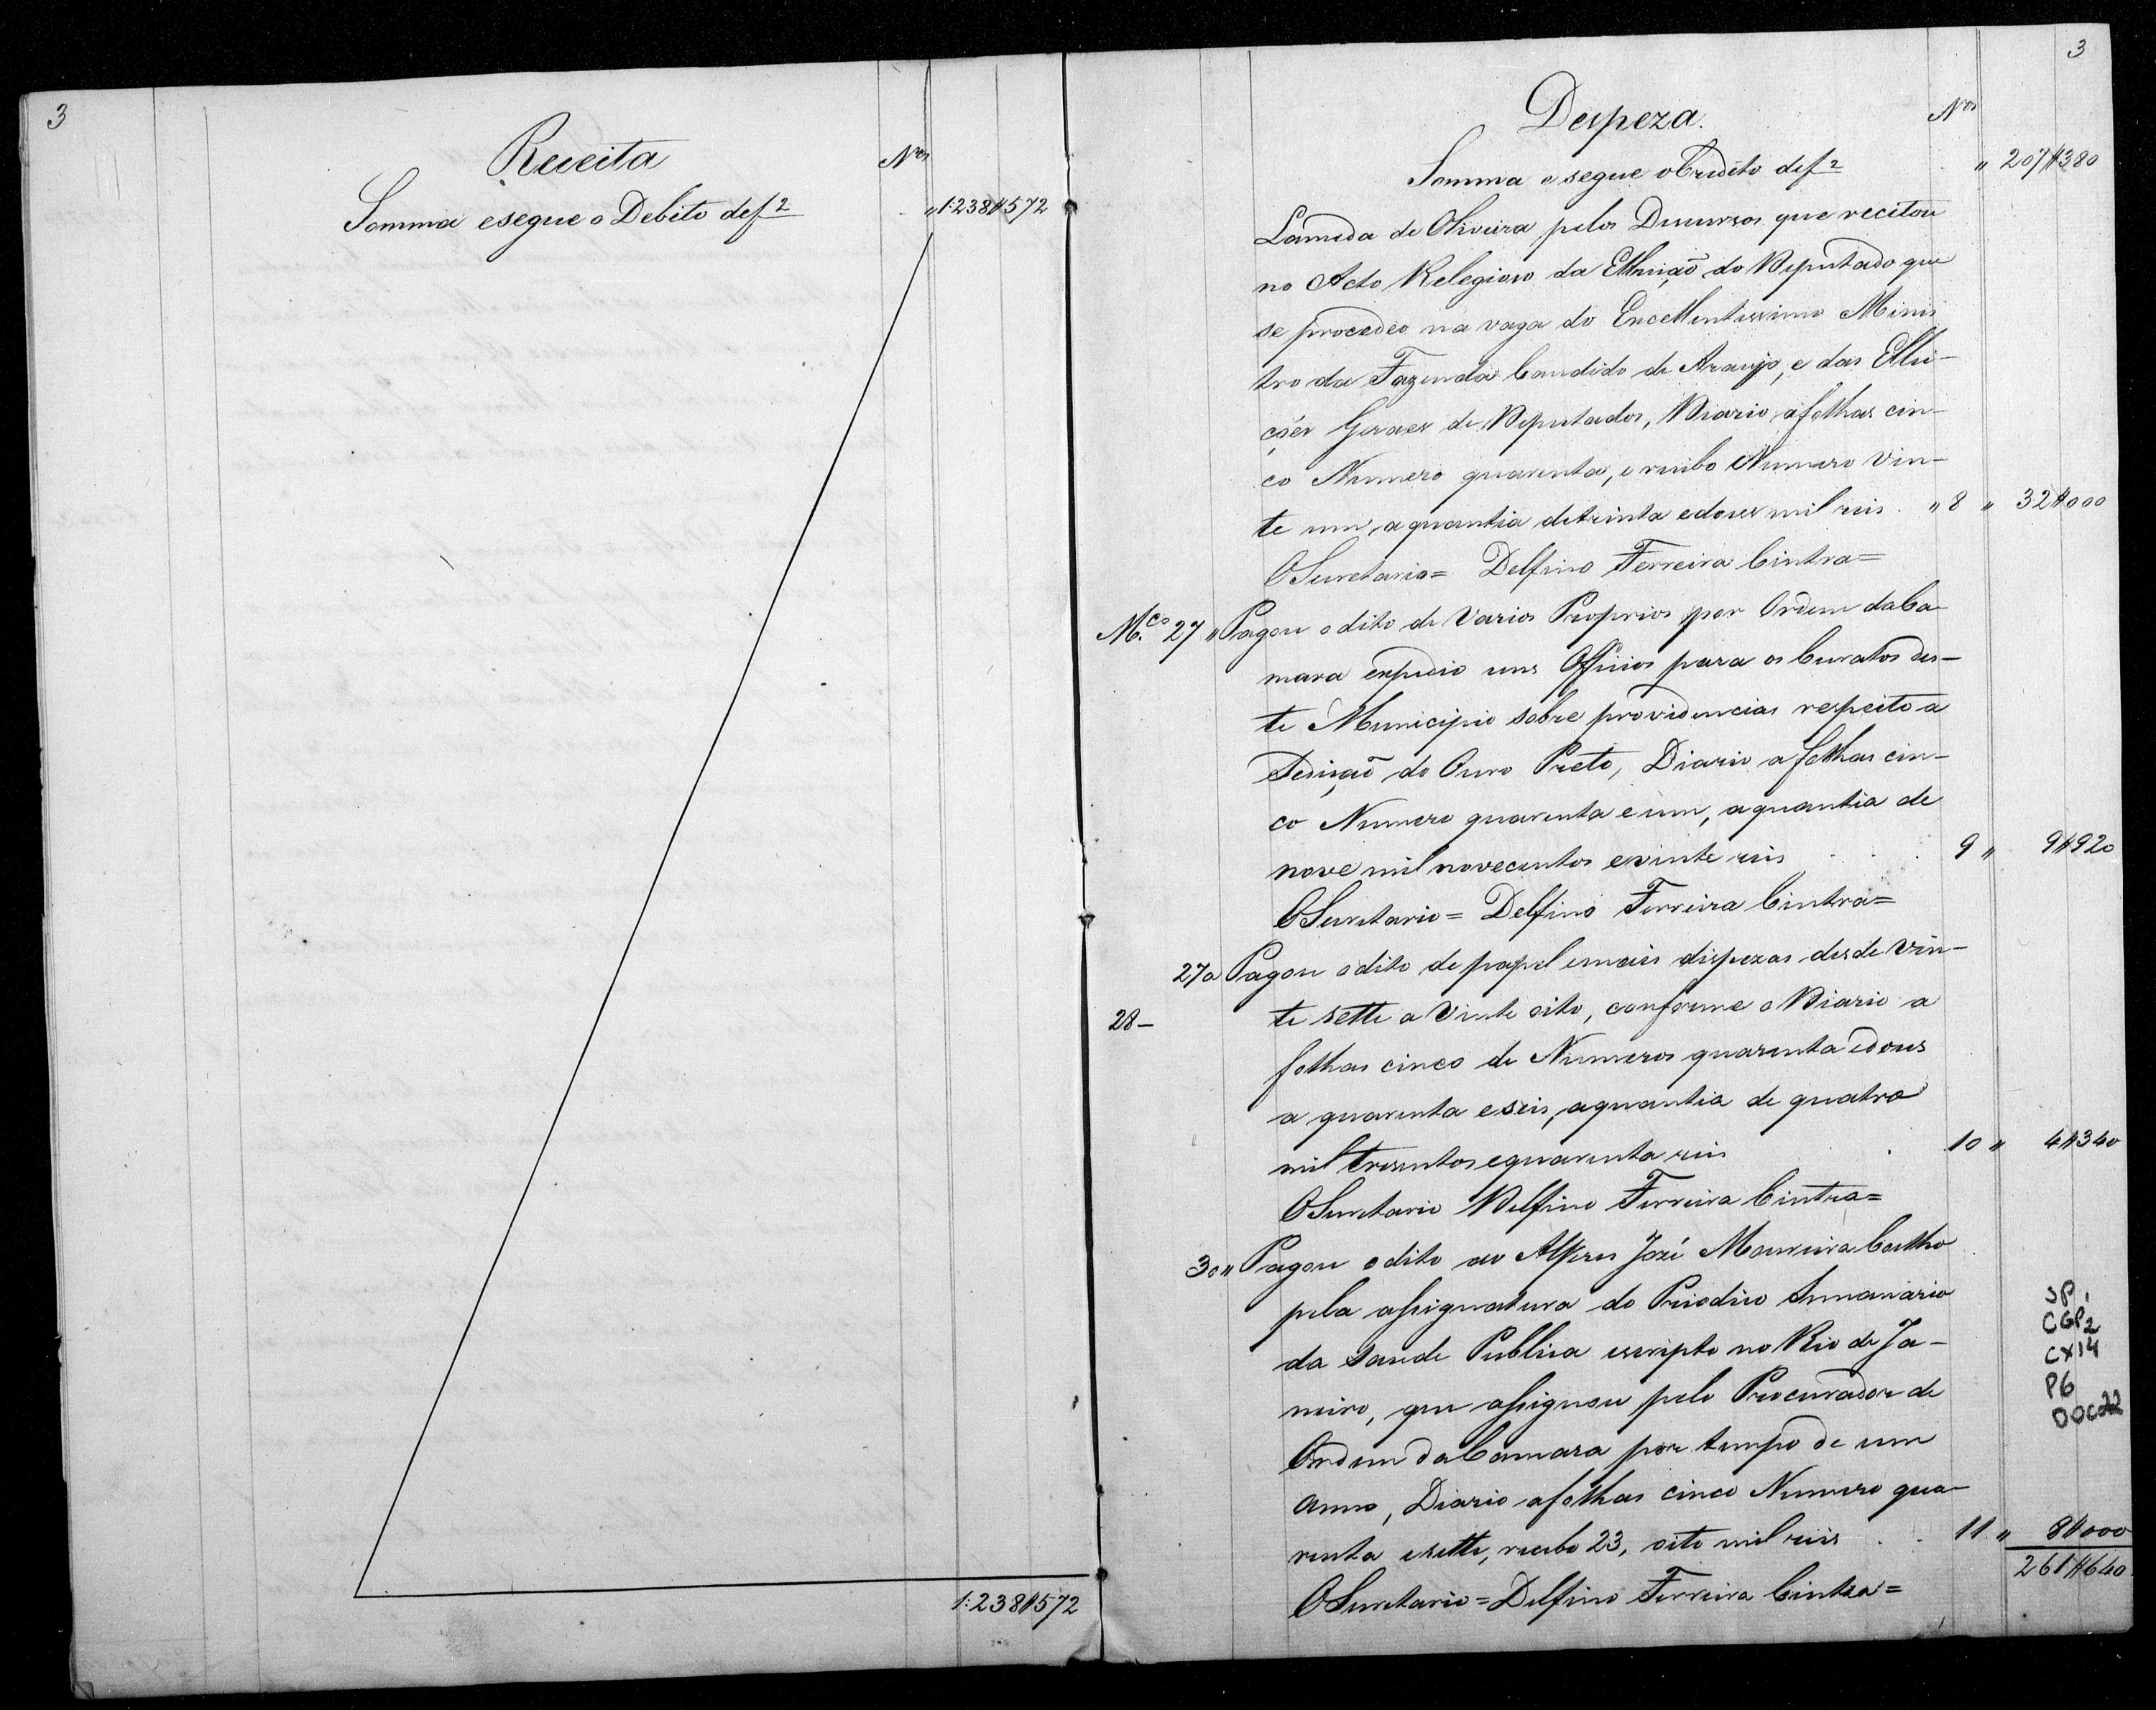 3
Receita
Nos
Somma e segue o Debito de f 2
" 1:238$572
1:238$572
3
Despeza.
Nos
Somma e segue o Credito de f 2 " 207$380
Lameda de Oliveira pelos Discursos que recitou
no Acto Relegioso da Elleição do Deputado que
se procedeo na vaga do Excellentissimo Minis
tro da Fazenda Candido de Araujo, e das Ellei-
ções Geraes de Deputados, Diario a folhas cin-
co Numero quarenta, e recibo Numero Vin-
te um, a quantia de trinta e dous mil reis . " 8 " 32$000
O Secretario = Delfino Ferreira Cintra =
M.ço 27 " Pagou o dito de Varios Proprios por Ordem da Ca
mara expedio uns Officios para os Curatos des-
te Municipio sobre providencias respeito a
Sedição do Ouro Preto, Diario a folhas cin-
co Numero quarenta e um, a quantia de
nove mil novecentos e vinte reis . . . 9 " 9$920
O Secretario = Delfino Ferreira Cintra =
27 a Pagou o dito de papel e mais dispezas desde Vin-
28 - te sette a Vinte oito, conforme o Diario a
folhas cinco de Numeros quarenta e dous
a quarenta e seis, a quantia de quatro
mil tresentos e quarenta reis . 10 " 4$340
O Secretario Delfino Ferreira Cintra =
30 " Pagou o dito ao Alferes José Moreira Coelho
pela assignatura do Priodico Semanario
da Saude Publica escripto no Rio de Ja-
neiro, que assignou pelo Procurador de
Ordem da Camara por tempo de um
anno, Diario a folhas cinco Numero qua-
renta e sette, recibo 23, oito mil reis . . 11 " 8$000
261$640
O Secretario = Delfino Ferreira Cintra =
SP1
CGP2
CX14
P6
DOC22